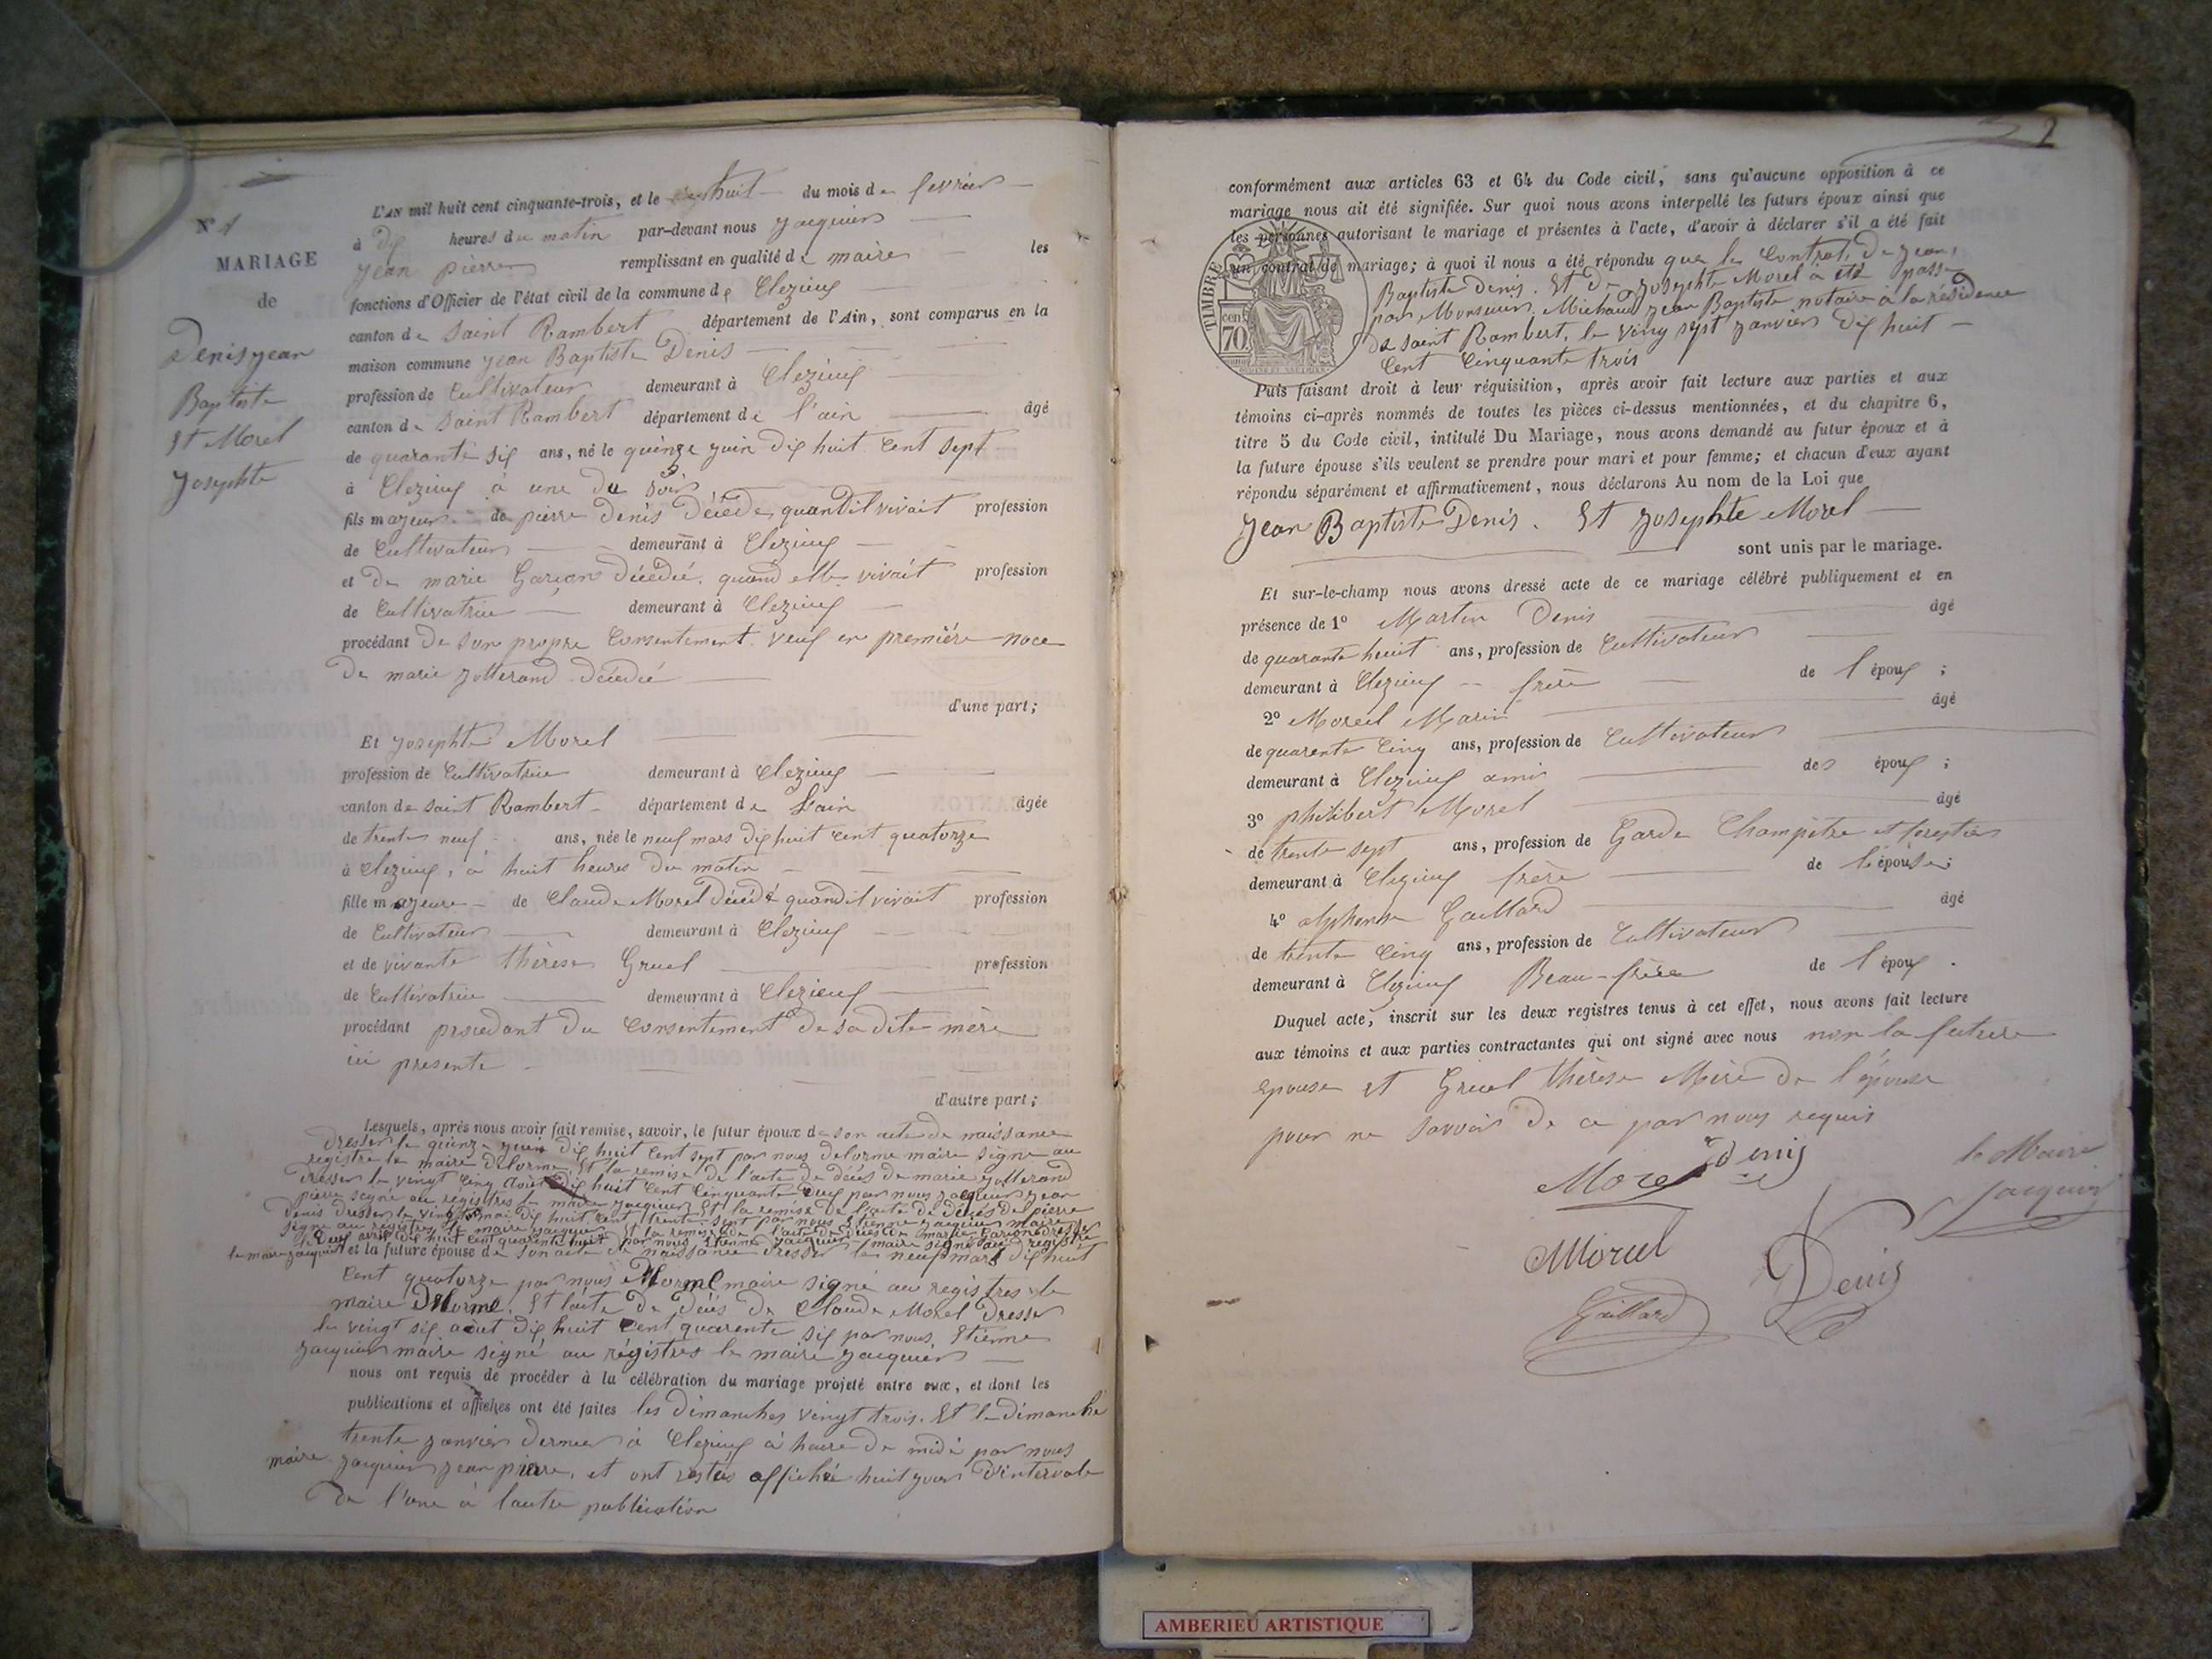 N° 1
MARIAGE
de
Denis jean
Baptiste
Et Morel
Josephte
L'AN mil huit cent cinquante-trois, et le huit du mois de fevrier
à dix heures du matin par-devant nous Jacquier
jean pierre remplissant en qualité de maire les
fonctions d'Officier de l'état civil de la commune de Clezieux
canton de Saint Rambert département de l'Ain, sont comparus en la
maison commune jean Baptiste Denis
profession de Cultivateur demeurant à Clezieux
canton de Saint Rambert département de l'ain âgé
de quarante six ans, né le quinze juin dix huit Cent sept
à Clezieux à une du soir
fils majeur de pierre Denis décédé quandil vivait profession
de Cultivateur demeurant à Clezieux
et de marie Garion décédié. quand elle vivait profession
de Cultivatrice demeurant à Clezieux
procédant de son propre Consentement veuf en première noce
de marie jutterand décédié
d'une part;
Et josephte Morel
profession de Cultivatrice demeurant à Clezieux
canton de saint Rambert département de Lain âgée
de trente neuf ans, née le neuf mars dix huit cent quatorze
à Clezieux, à huit heures du matin
fille majeure de Claude Morel décédé quandil vivait profession
de Cultivateur demeurant à Clezieux
et de vivante thérèse Gruel profession
de Cultivatrice demeurant à Clezieux
procédant procedant du Consentement de sa dite mère
ici presente
d'autre part;
Lesquels, après nous avoir fait remise, savoir, le futur époux de son acte de naissance
dresser le quinze juin dix huit Cent sept par nous Delorme maire signé au
registre le maire Delorme. Et la remise de l'acte de décès de marie jutterand
dresser le vingt Cinq Aout dix huit Cent Cinquante deux par nous jacquier jean
pierre signé au registres le maire jacquier. Et la remise de l'acte de décès de pierre
Denis dresser le vingt mai dix huit Cent trente sept par nous Etienne jacquier maire
signé au registres le maire jacquier Et la remise de l'acte de décès de marie Garion dresser
le deux avril dix huit Cent quarente huit par nous Etienne jacquier maire signé au registre
le maire jacquier et la future épouse de son acte de naissance dresser le neuf mars dix huit
Cent quatorze par nous Delorme maire signé au registres le
maire Delorme. Et l'acte de décès de Claude Morel dresser
le vingt six août dix huit Cent quarente six par nous Etienne
jacquier maire signé au régistres le maire jacquier
nous ont requis de procéder à la célébration du mariage projeté entre eux, et dont les
publications et affiches ont été faites les dimanches vingt trois. Et le dimanche
trente janvier dernier à Clezieux à heure de midi par nous
maire jacquier jean pierre, et ont restés affiché huit jours d'intervale
de l'une à lautre publication
2
conformément aux articles 63 et 64 du Code civil, sans qu'aucune opposition à ce
mariage nous ait été signifiée. Sur quoi nous avons interpellé les futurs époux ainsi que
les personnes autorisant le mariage et présentes à l'acte, d'avoir à déclarer s'il a été fait
un contrat de mariage; à quoi il nous a été répondu que le Contrat, de jean,
Baptiste Denis. Et de josephte Morel à été passé
par Monsieur. Michaud jean Baptiste notaire à la résidence
de saint Rambert, le vingt sept janvier dix huit
Cent Cinquante trois
TIMBRE
cent
70
Puis faisant droit à leur réquisition, après avoir fait lecture aux parties et aux
témoins ci-après nommés de toutes les pièces ci-dessus mentionnées, et du chapitre 6,
titre 5 du Code civil, intitulé Du Mariage, nous avons demandé au futur époux et à
la future épouse s'ils veulent se prendre pour mari et pour femme; et chacun d'eux ayant
répondu séparément et affirmativement, nous déclarons Au nom de la Loi que
Jean Baptiste Denis. Et Josephte Morel
sont unis par le mariage.
Et sur-le-champ nous avons dressé acte de ce mariage célébré publiquement et en
présence de 1° Martin Denis âgé
de quarante huit ans, profession de Cultivateur
demeurant à Clezieux frère de l'époux ;
2° Moreel Marin âgé
de quarente Cinq ans, profession de Cultivateur
demeurant à Clezieux ami des époux ;
3° philibert Morel âgé
de trente sept ans, profession de Garde Champêtre et forestier
demeurant à Clezieux frère de l'épouse;
4° alphonse Gaillard âgé
de trente Cinq ans, profession de Cultivateur
demeurant à Clezieux Beau-frère de l'époux .
Duquel acte, inscrit sur les deux registres tenus à cet effet, nous avons fait lecture
aux témoins et aux parties contractantes qui ont signé avec nous non la future
epouse et Gruel thérèse Mère de l'épouse
pour ne savoir de ce par nous requis
Morel Denis le Maire
Jacquier
Moruel Denis
Gaillard
AMBERIEU ARTISTIQUE